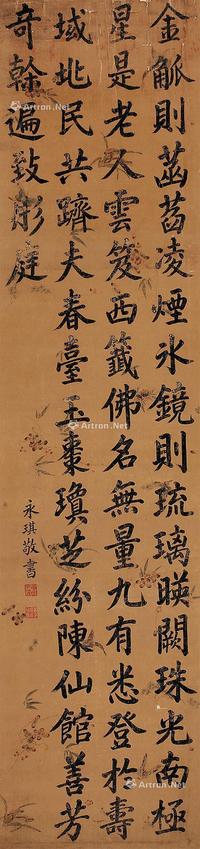 金觚則菡萏凌煙氷鏡則琉璃暎闕珠光南極
星是老人雲笈西籤佛名無量九有悉登於壽
域兆民共躋夫春臺玉棗瓊芝紛陳仙館善芳
奇榦遍致彤庭
永琪敬書